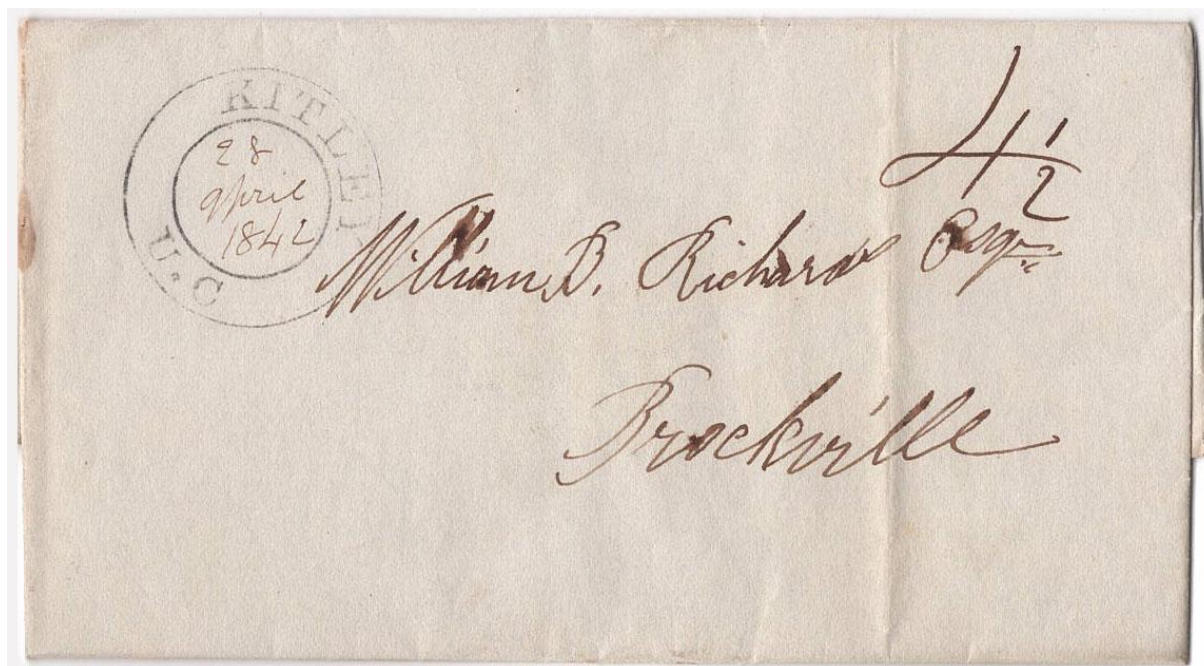 KITLEY
28
april
1842
U.C
4 1/2
William B. Richards Esqr
Brockville